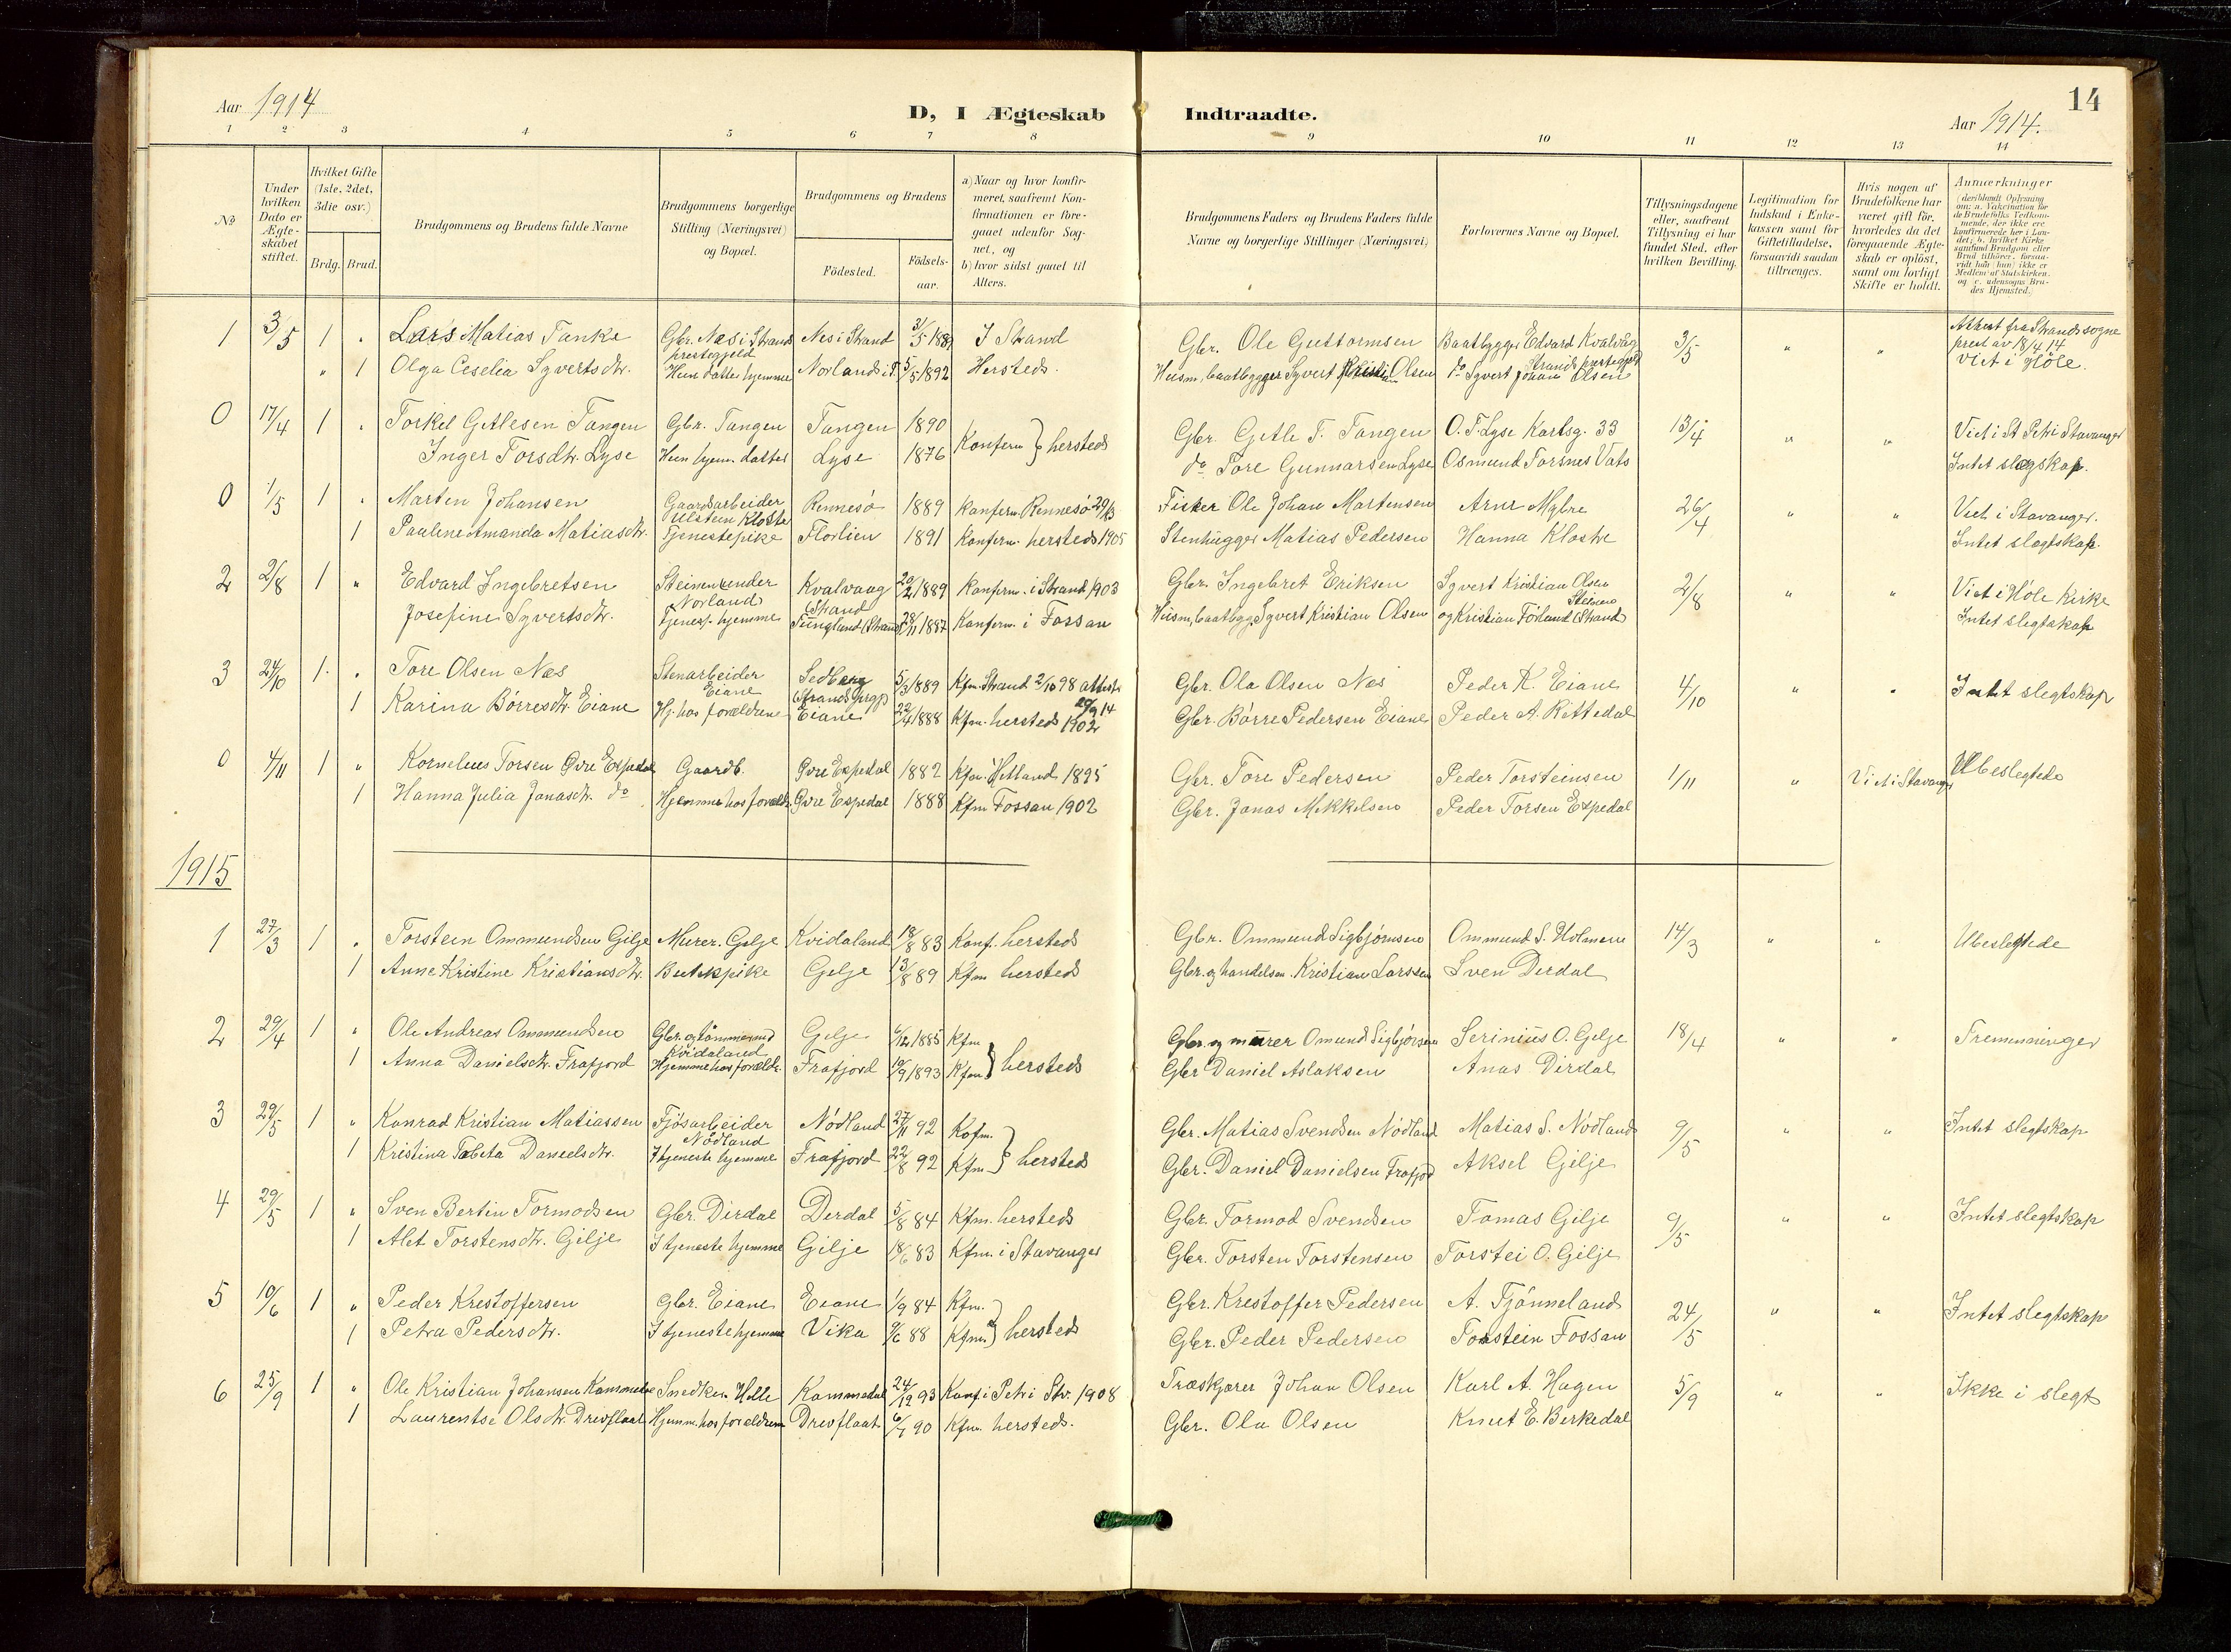 14
Aar 1914
D, I Ægteskab Indtraadte.
Aar 1914.
1 2 3 4 5 6 7 8 9 10 11 12 13 14
No
Under hvilken Dato er Ægteskabet stiftet.
Hvilket Gifte (1ste, 2det, 3die osv.)
Brdg. Brud.
Brudgommens og Brudens fulde Navne
Brudgommens borgerlige Stilling (Næringsvei) og Bopæl.
Brudgommens og Brudens
Födested.
Födsels-aar.
a) Naar og hvor konfirmeret, saafremt Konfirmationen er foregaaet udenfor Sognet, og
b) hvor sidst gaaet til Alters.
Brudgommens Faders og Brudens Faders fulde Navne og borgerlige Stillinger (Næringsvei)
Forlovernes Navne og Bopæl.
Tillysningsdagene eller, saafremt Tillysning ei har fundet Sted, efter hvilken Bevilling.
Legitimation for Indskud i Enkekassen samt for Giftetilladelse, forsaavidt saadan tiltrænges.
Hvis nogen af Brudefolkene har været gift för, hvorledes da det foregaaende Ægteskab er oplöst, samt om lovligt Skifte er holdt.
Anmærkninger (deriblandt Oplysning om: a. Vakcination for de Brudefolks Vedkommende, der ikke ere konfirmerede her i Landet; b. hvilket Kirkesamfund Brudgom eller Brud tilhörer, forsaavidt han (hun) ikke er Medlem af Statskirken, og c. udensogns Brudes Hjemsted.)
1 3/5 1 " Lars Matias Tanke Gbr. Næs i Strands prestegjeld Nes i Strand 3/5 1889 I Strand Gbr. Ole Guttormsen Baatbygger Edvard Kvalvåg Strands prestegjeld 3/5 " " Attest fra Strands sogneprest av 18/4 14
" 1 Olga Ceselia Syvertsdtr. Husm datter hjemme Norland i S. 5/5 1892 Hersteds. Husm, baatbygger Syvert Olsen do Syvert Johan Olsen Viet i Höle.
0 17/4 1 " Torkel Getlesen Tangen Gbr. Tangen Tangen 1890 Konferm } hersteds Gbr. Getle T. Tangen O. T. Lyse Karlsg. 33 13/4 " " Viet i St Petri Stavanger
Inger Torsdtr. Lyse Hun hjem. datter Lyse 1876 do Tore Gunnarsen Lyse Osmund Torsnes Vats Intet slegskap.
0 1/5 1 " Marten Johansen Gaardsarbeider Utstein Kloster Rennesö 1889 Konferm. Rennesö Fisker Ole Johan Martensen Arne Myhre 26/4 " " Viet i Stavanger.
1 Pauline Amanda Matiasdtr. Tjenestepike Florlien 1891 Konferm. hersteds 1905 Stenhugger Matias Pedersen Hanna Kloster Intet slegtskap.
2 2/8 1 " Edvard Ingebretsen Norland Kvalvaag Strand 20/2 1889 Konferm. i Strand 1903 Gbr. Ingebret Eriksen Syvert Kristian Olsen 2/8 " " Viet i Höle Kirke
Josefine Syvertsdtr. Tjenest. hjemme Tungland (Strand) 28/11 1887 Konferm. i Fossan Husm, baatbyg. Syvert Kristian Olsen og Kristian Förland (Strand) Intet slegtskap
3 24/10 1 " Tore Olsen Næs Stenarbeider Eiane Sedberg Strands prgj. 5/3 1889 Kfm. Strand 2/10 98 attest 29/9 14 Gbr. Ola Olsen Næs Peder K. Eiane 4/10 " " Intet slegtskap
1 Karina Börresdtr. Eiane Hj. hos forældrene Eiane 22/4 1888 Kfm. hersteds 1902 Gbr. Börre Pedersen Eiane Peder A. Rettedal
0 4/11 1 " Kornelius Torsen Øvre Espedal Gaardb. Øvre Espedal 1882 Kfm. Hetland 1895 Gbr. Tore Pedersen Peder Torsteinsen 1/11 " Viet i Stavanger Ubeslegtede
1 Hanna Julia Jonasdtr. do Hjemme hos foreldr. Øvre Espedal 1888 Kfm. Fossan 1902 Gbr. Jonas Mikkelsen Peder Torsen Espedal
1915
1 27/3 1 " Torstein Ommundsen Gilje Murer. Gilje Kvidaland 18/8 83 Konf. hersteds Gbr. Ommund Sigbjörnsen Ommund S. Holmen 14/3 " " Ubeslegtede
1 Anne Kristine Kristiansdtr. Butikkpike Gilje 13/8 89 Kfm hersteds Gbr. og handelsm. Kristian Larssen Sven Dirdal
2 29/4 1 " Ole Andreas Ommundsen Gbr. og tömmermd Kvidaland Gilje 6/12 1885 Kfm } hersteds Gbr. og murer Omund Sigbjörsen Serinius O. Gilje 18/4 " " Tremenninger
1 Anna Danielsdtr. Frafjord Hjemme hos foreldr. Frafjord 19/9 1893 Kfm Gbr Daniel Aslaksen Anas Dirdal
3 29/5 1 " Konrad Kristian Matiassen Fjösarbeider Nödland Nödland 27/11 92 Kofm. } hersteds Gbr. Matias Svendsen Nödland Matias S. Nödland 9/5 " " Intet slegtskap
1 Kristina Tabeta Danielsdtr. I tjeneste hjemme Frafjord 22/8 92 Kfm Gbr. Daniel Danielsen Frafjord Aksel Gilje
4 29/5 1 " Sven Bertin Tormodsen Gbr. Dirdal Derdal 5/8 84 Kfm. hersteds Gbr. Tormod Svendsen Tomas Gilje 9/5 " " Intet slegtskap
1 Alet Torstensdtr. Gilje I tjeneste hjemme Gilje 18/6 83 Kfm. i Stavanger Gbr. Torsten Torstensen Torstei O. Gilje
5 10/6 1 " Peder Krestoffersen Gbr. Eiane Eiane 1/9 84 Kfm. } hersteds Gbr. Krestoffer Pedersen A. Tjönneland 24/5 " " Intet slegtskap
1 Petra Pedersdtr. I tjeneste hjemme Vika 9/6 88 Kfm. Gbr. Peder Pedersen Torstein Fossan
6 25/9 1 " Ole Kristian Johansen Kommedal Snedker. Holle Kommedal 24/12 93 Konf. i Petri Stv. 1908 Træskjærer Johan Olsen Karl A. Hagen 5/9 " " Ikke i slegt
1 Laurentse Olsdtr. Drevflaat Hjemm. hos foreldrene Drevflaat 6/7 90 Kfm. hersteds. Gbr. Ola Olsen Knut E. Birkedal